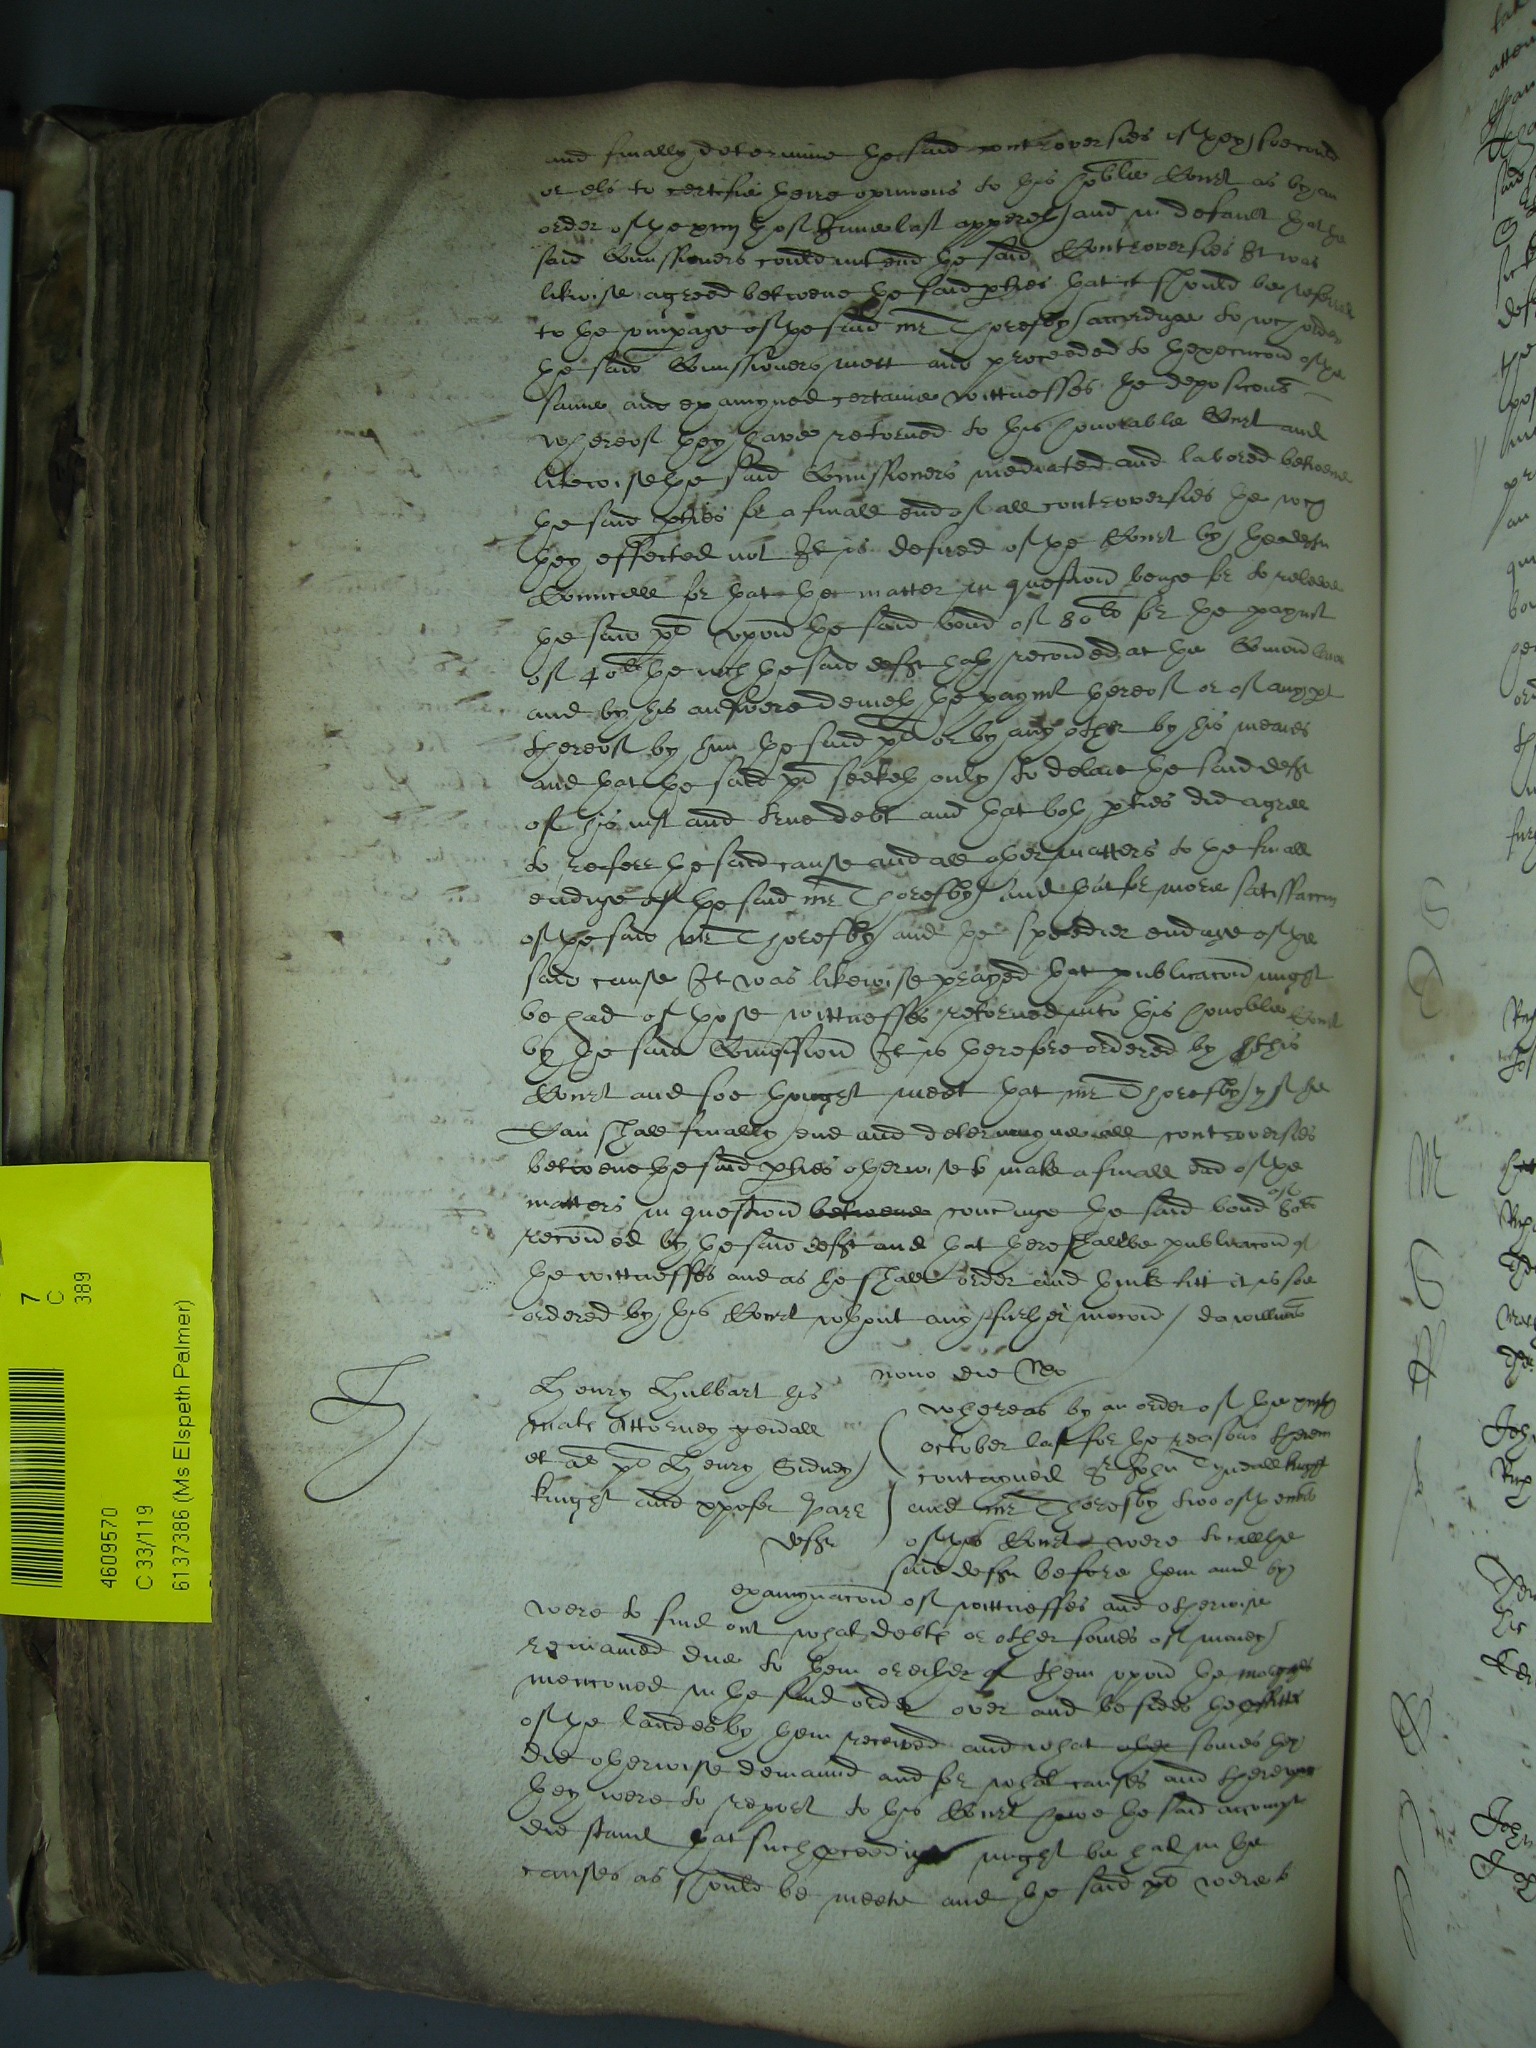 and finally determine the said controversies if they soe could
or els to certifie theire opinions to this honoble Court as by an
order of the xiiijth of June last appereth and in default that the
said Comissioners could not end the said Controversies It was
likewise agreed betweene the said pties that it should be referred
to the umpage of the said mr Thoresby accordinge to wch order
the said Comissioners mett and proceeded to thexecucon of the
same and examyned certaine wittnesses the deposicons
whereof they have retorned to this honorable Cort and
likewise the said Comissioners mediated and labored betweene
the said pties for a finall end of all controversies the wch
they effected not It is desired of the Court by the deftes
Councell for that the matter in question beinge for to releeve
the said plt upon the said bond of 80li for the paymt
of 40li the wch the said deft hath recovered at the Comon Lawe
and by his answere denieth the paymt thereof or of any pt
thereof by him the said plt or by any other by his meanes
and that the said plt seeketh only to delaie the said deft
of his iust and true debt and that both pties did agree
to referr the said cause and all other matters to the finall
endinge of the said mr Thoresby and that for more satisfaccon
of the said mr Thoresby and the speedier endinge of the
said cause It was likewise prayed that publicacon might
be had of those wittnesses retorned into this honoble Court
by the said Comission It is therefore ordered by this
Court and soe thought meet that mr Thoresby yf he
Can shall finally end and determyne all controversies
betweene the said pties otherwise to make a finall end of the
matters in question betweene concninge the said bond of 80li
recovered by the said deft and that there shalbe publicacon of
the wittnesses and as he shall order and think fitt it is soe
ordered by this Court wthout any further mocon / do willims
nono die No
Henry Hubbart his
mats Attorney generall
et als plt Henry Sidney
knight and xpofer Parr
deftes
whereas by an order of the
october last for the reasons therein
contayned Sr John Tyndall knight
and mr Thoresby two of the mrs
of this Court were to call the
said deftes before them and by
examynacon of wittnesses and otherwise
were to find out what debts or other somes of money
remained due to them or either of them upon the morgages
mencioned in the said order over and besides the pfitts
of the landes by them received and what other somes they
did otherwise demaund and for what causes and thereupon
they were to report to this Court howe the said accompt
did stand that such pceedinge might be had in the
causes as should be meete and the said plts were to
4609570
C 33/119
6137386 (Ms Elspeth Palmer)
7
C
389